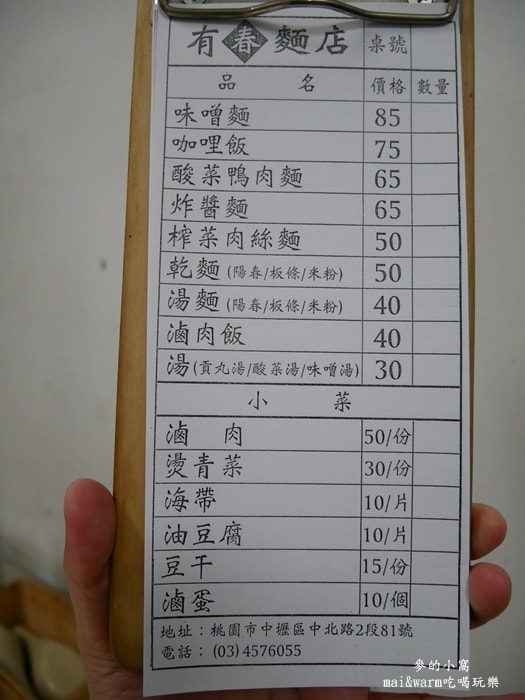 有春麵店 桌號
品名 價格 數量
味噌麵 85
咖哩飯 75
酸菜鴨肉麵 65
炸醬麵 65
榨菜肉絲麵 50
乾麵(陽春/板條/米粉) 50
湯麵(陽春/板條/米粉) 40
滷肉飯 40
湯(貢丸湯/酸菜湯/味噌湯) 30
小菜
滷肉 50/份
燙青菜 30/份
海帶 10/片
油豆腐 10/片
豆干 15/份
滷蛋 10/個
地址：桃園市中壢區中北路2段81號
電話：(03)4576055
麥的小窩
mai&warm吃喝玩樂